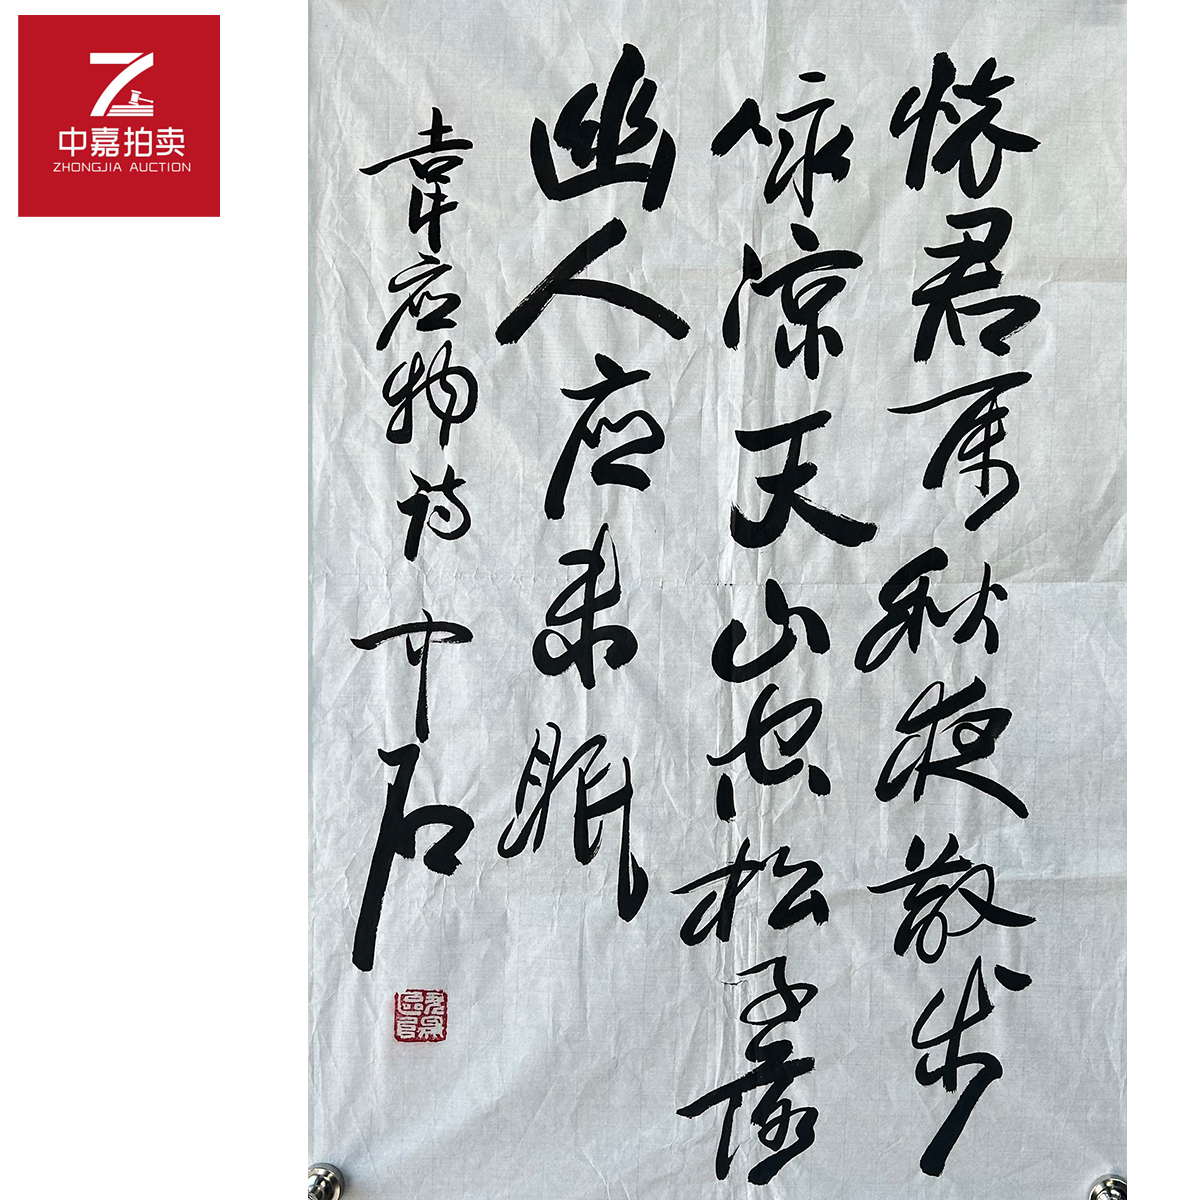 中嘉拍卖
ZHONGJIA AUCTION
怀君属秋夜散步
咏凉天山空松子落
幽人应未眠
韦应物诗 中石